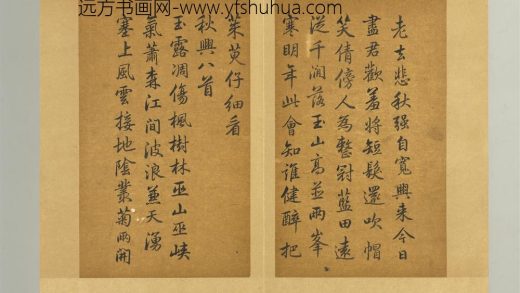 远方书画网-www.yfshuhua.com
老去悲秋强自寬興来今日
盡君歡羞將短髮還吹帽
笑倩傍人為整冠藍田遠
従千澗落玉山高並兩峯
寒明年此會知誰健醉把
茱萸仔細看
秋興八首
玉露凋傷楓樹林巫山巫峡
氣蕭森江間波浪蒹天湧
塞上風雲接地陰叢菊兩開